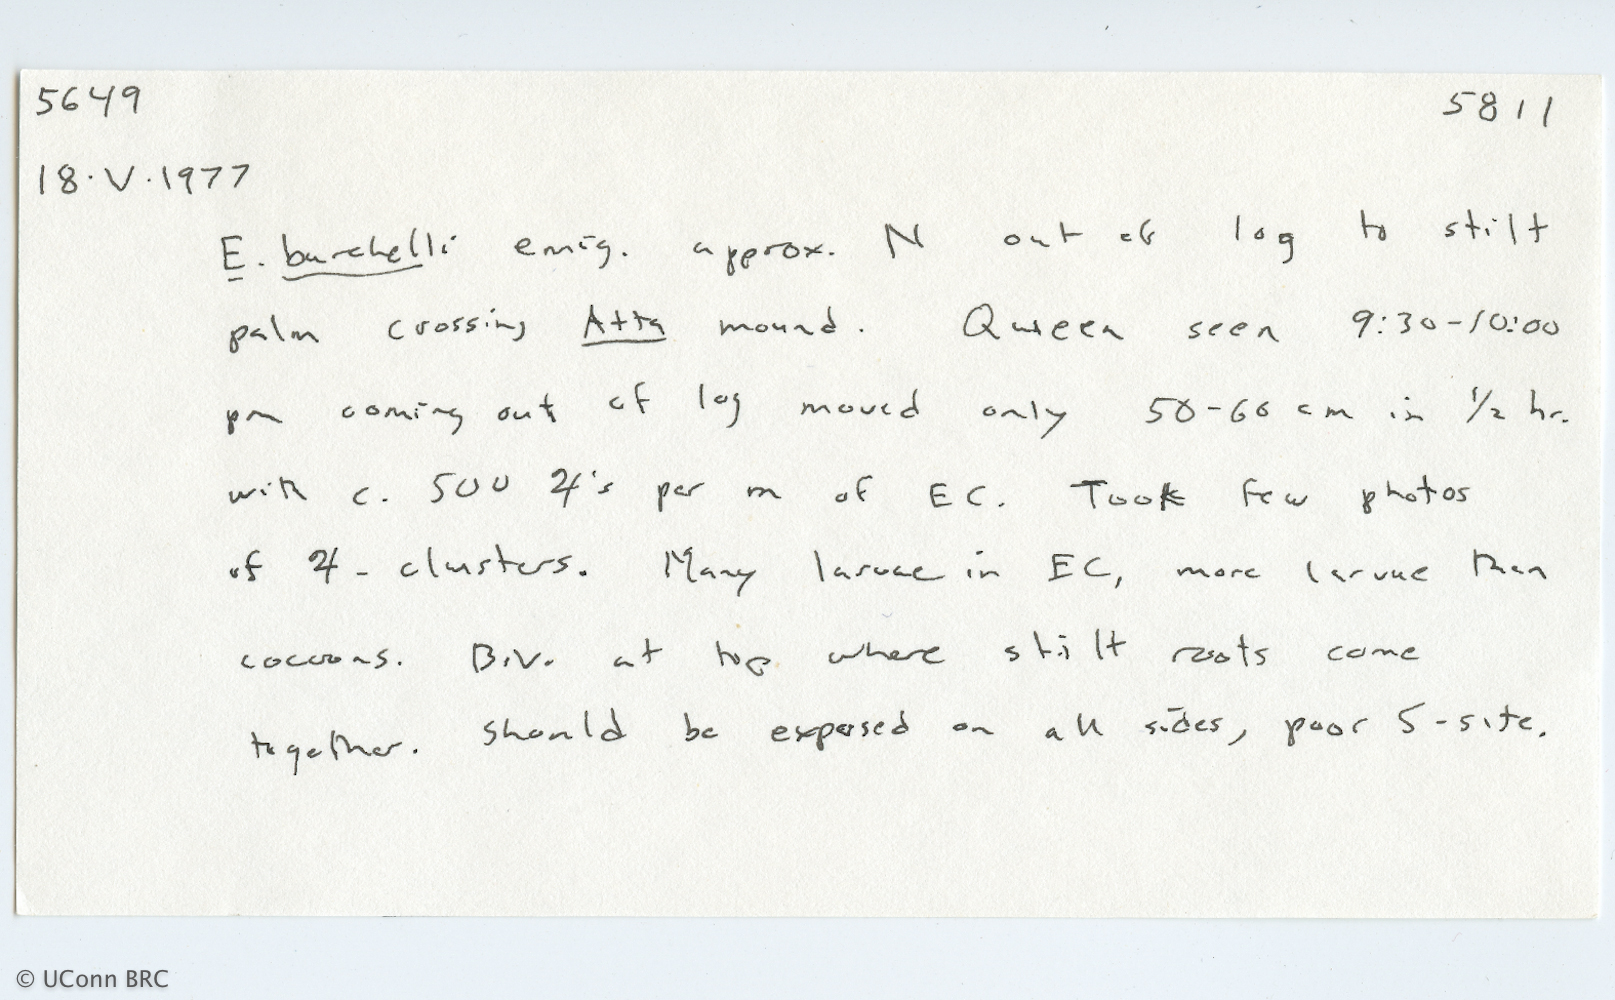 5649 5811
18.V.1977
E. burchelli emig. approx. N out of log to stilt
palm crossing Atta mound. Queen seen 9:30-10:00
pm coming out of log moved only 50-60 cm in 1/2 hr.
with c. 500 ♃'s per m of EC. Took few photos
of ♃-clusters. Many larvae in EC, more larvae than
cocoons. Biv. at top where stilt roots come
together. Should be exposed on all sides, poor S-site.
© UConn BRC